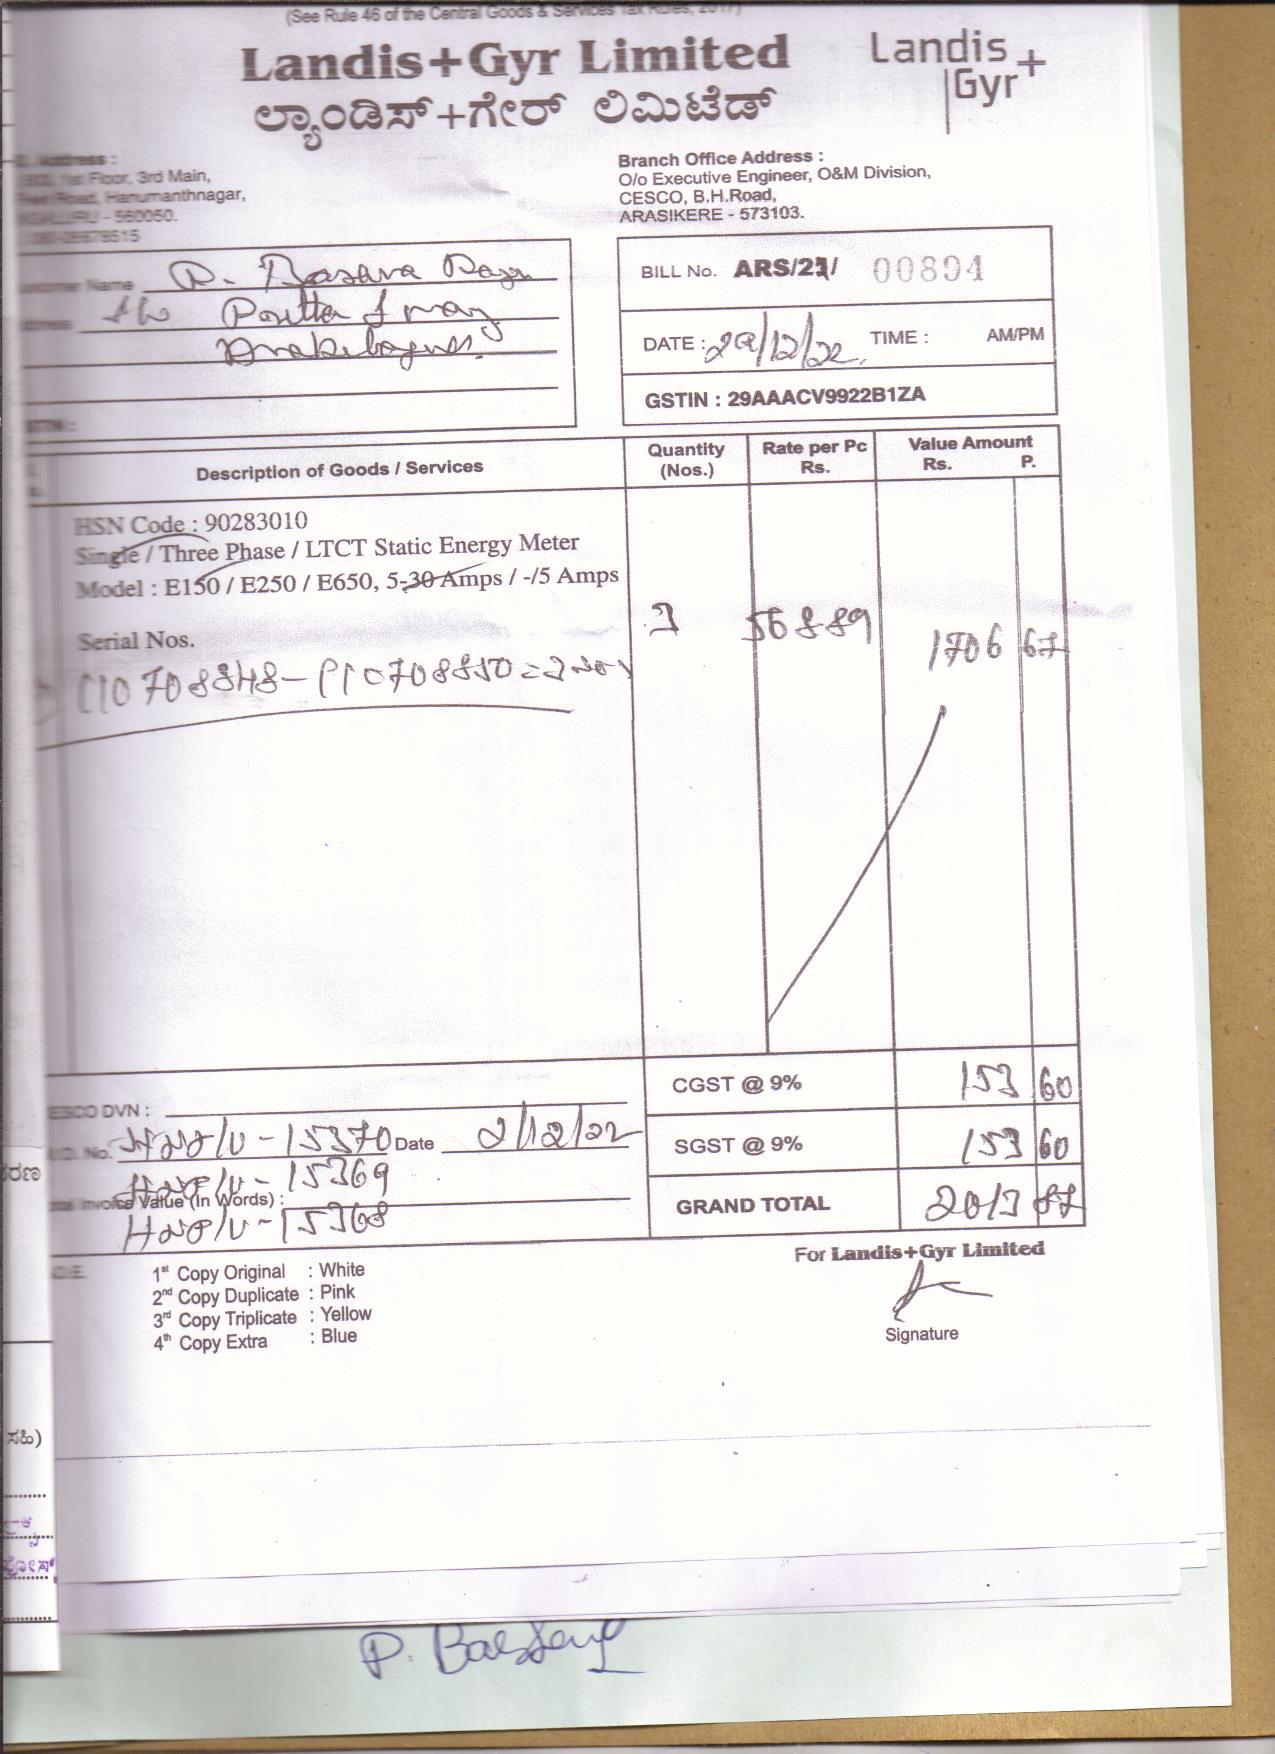 (See Rule 46 of the Central Goods & Services Tax Rules, 2017)
Landis+Gyr Limited
ಲ್ಯಾಂಡಿಸ್+ಗೇರ್ ಲಿಮಿಟೆಡ್
Landis
Gyr+
Address :
1st Floor, 3rd Main,
Road, Hanumanthnagar,
- 560050.
Branch Office Address :
O/o Executive Engineer, O&M Division,
CESCO, B.H.Road,
ARASIKERE - 573103.
Customer Name P. Basava Raju
BILL No. ARS/21/ 00894
DATE : 29/12/22 TIME : AM/PM
GSTIN : 29AAACV9922B1ZA
Description of Goods / Services
Quantity (Nos.)
Rate per Pc Rs.
Value Amount Rs. P.
HSN Code : 90283010
Single / Three Phase / LTCT Static Energy Meter
Model : E150 / E250 / E650, 5-30 Amps / -/5 Amps
3 568.89 1706 67
Serial Nos.
C10708848-C10708850=3nos
CGST @ 9% 153 60
CESCO DVN :
No. 15370 Date 2/12/22
SGST @ 9% 153 60
15369
Invoice Value (In Words) :
15368
GRAND TOTAL 2013 87
For Landis+Gyr Limited
1st Copy Original : White
2nd Copy Duplicate : Pink
3rd Copy Triplicate : Yellow
4th Copy Extra : Blue
Signature
ಸಹಿ)